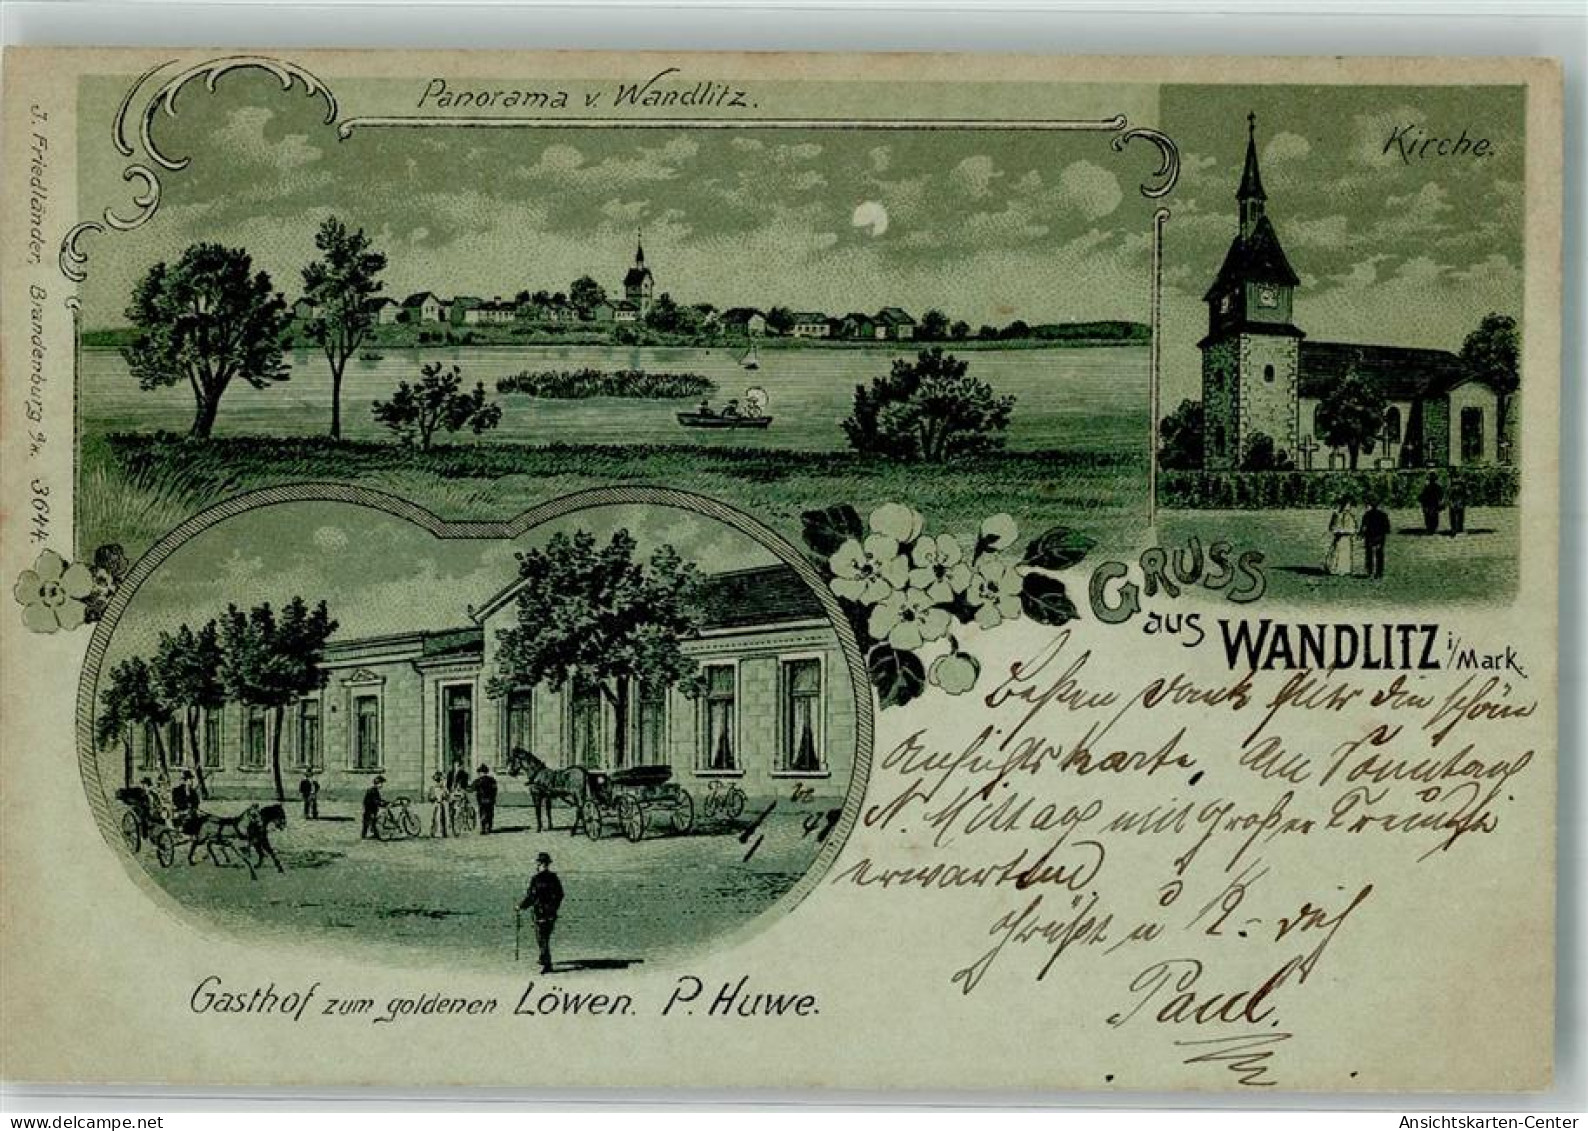 Panorama v. Wandlitz.
Kirche.
J. Friedländer, Brandenburg a/H. 3644
GRUSS
aus WANDLITZ i/Mark.
Besten Dank für die schöne
Ansichtskarte, Am Sonntag
N. Mittag mit großer Freude
erwartend.
Grüßt u K. dich
Paul.
Gasthof zum goldenen Löwen. P. Huwe.
delcampe.net
Ansichtskarten-Center